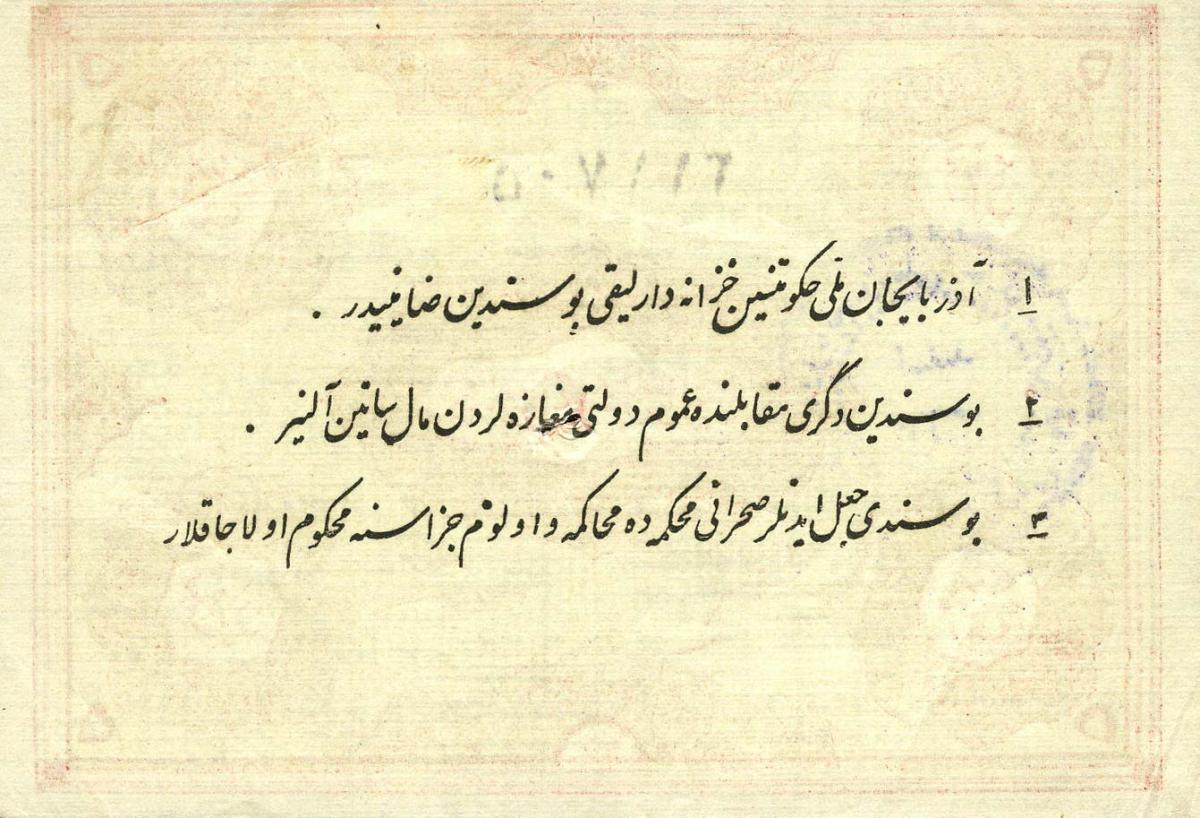 ۱ آذربایجان ملی حکومتنین خزانه دارلیقی بو سندین ضامنیدیر .
۲ بو سندین دگری مقابلنده عموم دولتی مغازه لردن مال ساتین آلنیر .
۳ بو سندی جعل ایدنلر صحرائی محکمه ده محاکمه و اولوم جزاسنه محکوم اولاجاقلار